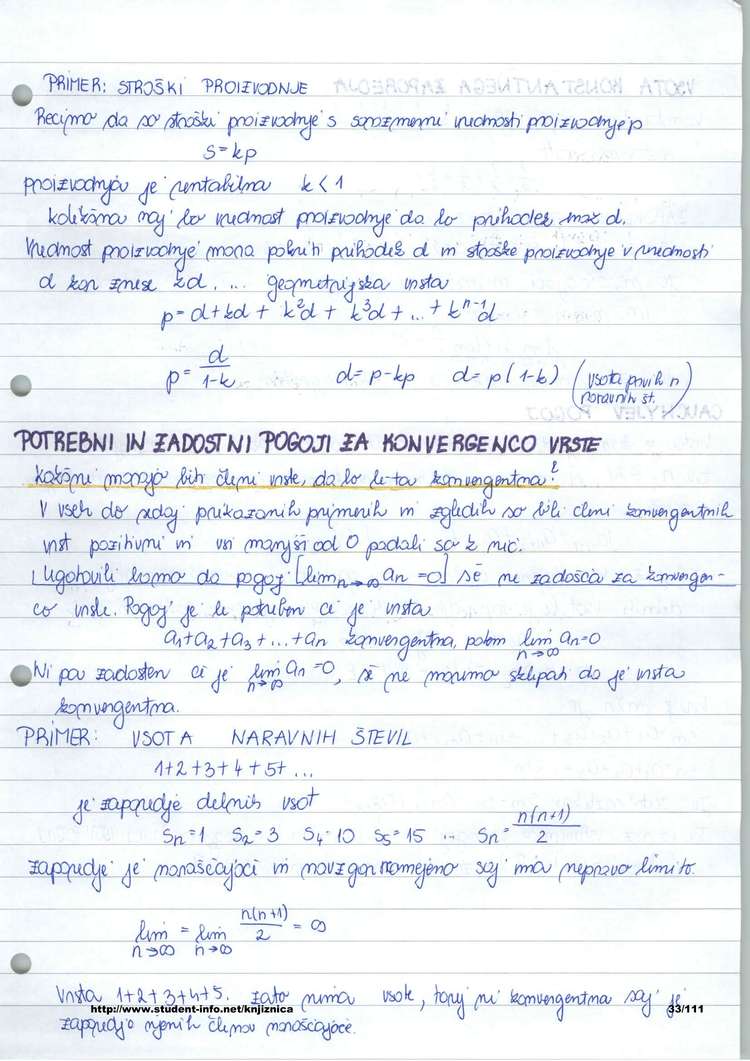 PRIMER: STROŠKI PROIZVODNJE
Recimo da so stroški proizvodnje s sorazmerni vrednosti proizvodnje p
s=kp
proizvodnja je rentabilna k<1
kolikšna naj bo vrednost proizvodnje da bo prihodek enak d.
Vrednost proizvodnje mora pokriti prihodek d in stroške proizvodnje v vrednosti
d kar znese kd. ... geometrijska vrsta
p=d+kd+k²d+k³d+...+k^{n-1}d
p=d/(1-k) d=p-kp d=p(1-k) (vsota prvih n naravnih št.)
POTREBNI IN ZADOSTNI POGOJI ZA KONVERGENCO VRSTE
Kakšni morajo biti členi vrste, da bo le-ta konvergentna?
V vseh do sedaj prikazanih primerih in zgledih so bili členi konvergentnih
vrst pozitivni in vsi manjši od 0 padali so k nič.
Ugotovili bomo da pogoj [lim n→∞ an=0] še ne zadošča za konvergen-
co vrste. Pogoj je le potreben če je vrsta
a1+a2+a3+...+an konvergentna, potem lim n→∞ an=0
Ni pa zadosten če je lim n→∞ an=0, še ne moremo sklepati da je vrsta
konvergentna.
PRIMER: VSOTA NARAVNIH ŠTEVIL
1+2+3+4+5+...
je zaporedje delnih vsot
Sn=1 S2=3 S4=10 S5=15 ... Sn=n(n+1)/2
zaporedje je naraščajoče in navzgor neomejeno saj ima nepravo limito.
lim n→∞ = lim n→∞ n(n+1)/2 = ∞
Vrsta 1+2+3+4+5. zato nima vsote, torej ni konvergentna saj je
http://www.student-info.net/knjiznica 33/111
zaporedje njenih členov naraščajoče.